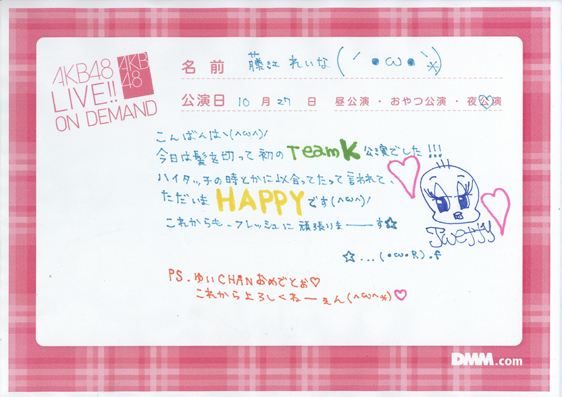 AKB48
LIVE!!
ON DEMAND
AKB
48
名前 藤江れいな(´●ω●`※)
公演日 10月27日 昼公演・おやつ公演・夜公演
こんばんはヽ(^ω^)!
今日は髪を切って初のTeamK公演でした!!!
ハイタッチの時とかに似合ってたって言われて、
ただいまHAPPYです(^ω^)!
これからも、フレッシュに頑張りまーーーす☆
☆...(●ω●R).
Tweety
PS.ゆいCHANおめでとぉ♡
これからよろしくねーぇん(^ω^※)♡
DMM.com